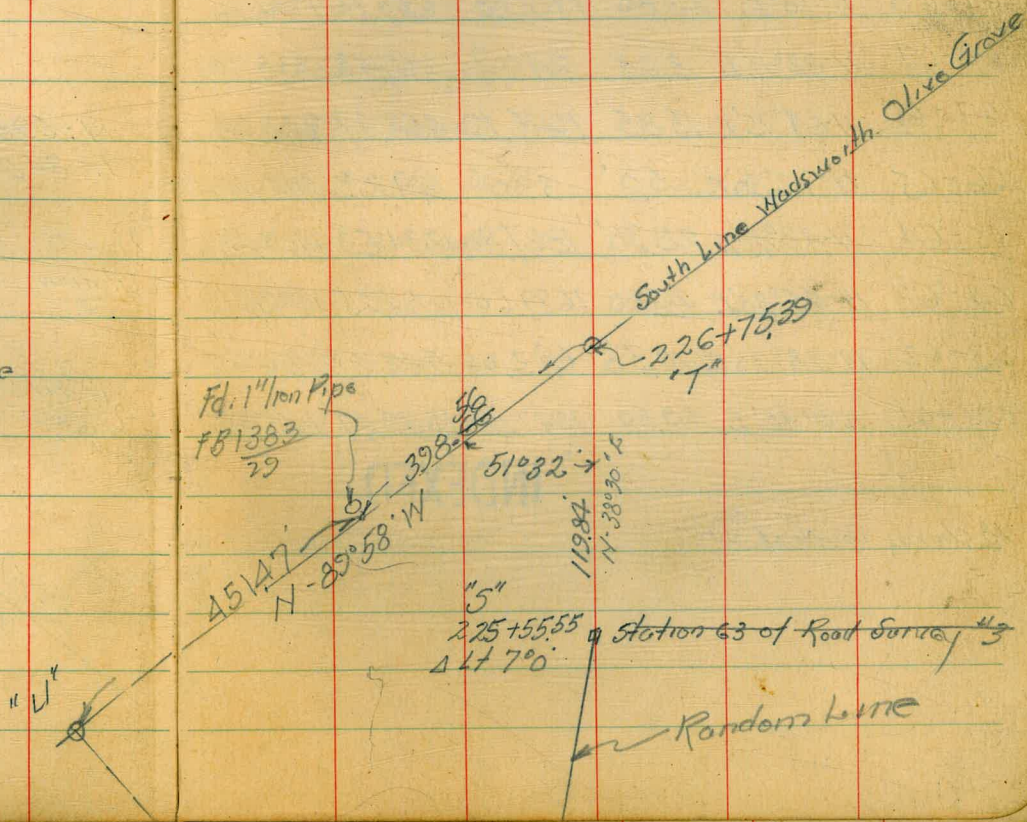 South Line Wadsworth Olive Grove
226+75.39
"T"
Fd. 1" Iron Pipe
FB 1383
29
398.56
51°32'
119.84'
N-38°30'E
4514.7
N-89°58'W
"S"
225+55.55
Δ Lt 7°0'
Station 63 of Road Survey #3
"U"
Random Line
e